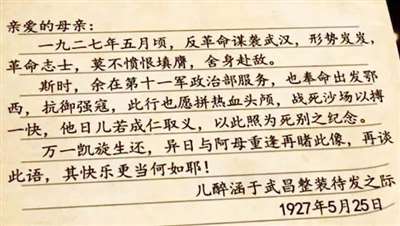 亲爱的母亲：
一九二七年五月顷，反革命谋袭武汉，形势岌岌，
革命志士，莫不愤恨填膺，舍身赴敌。
斯时，余在第十一军政治部服务，也奉命出发鄂
西，抗御强寇，此行也愿拼热血头颅，战死沙场以搏
一快，他日儿若成仁取义，以此照为死别之纪念。
万一凯旋生还，异日与阿母重逢再睹此像，再谈
此语，其快乐更当何如耶！
儿醉涵于武昌整装待发之际
1927年5月25日